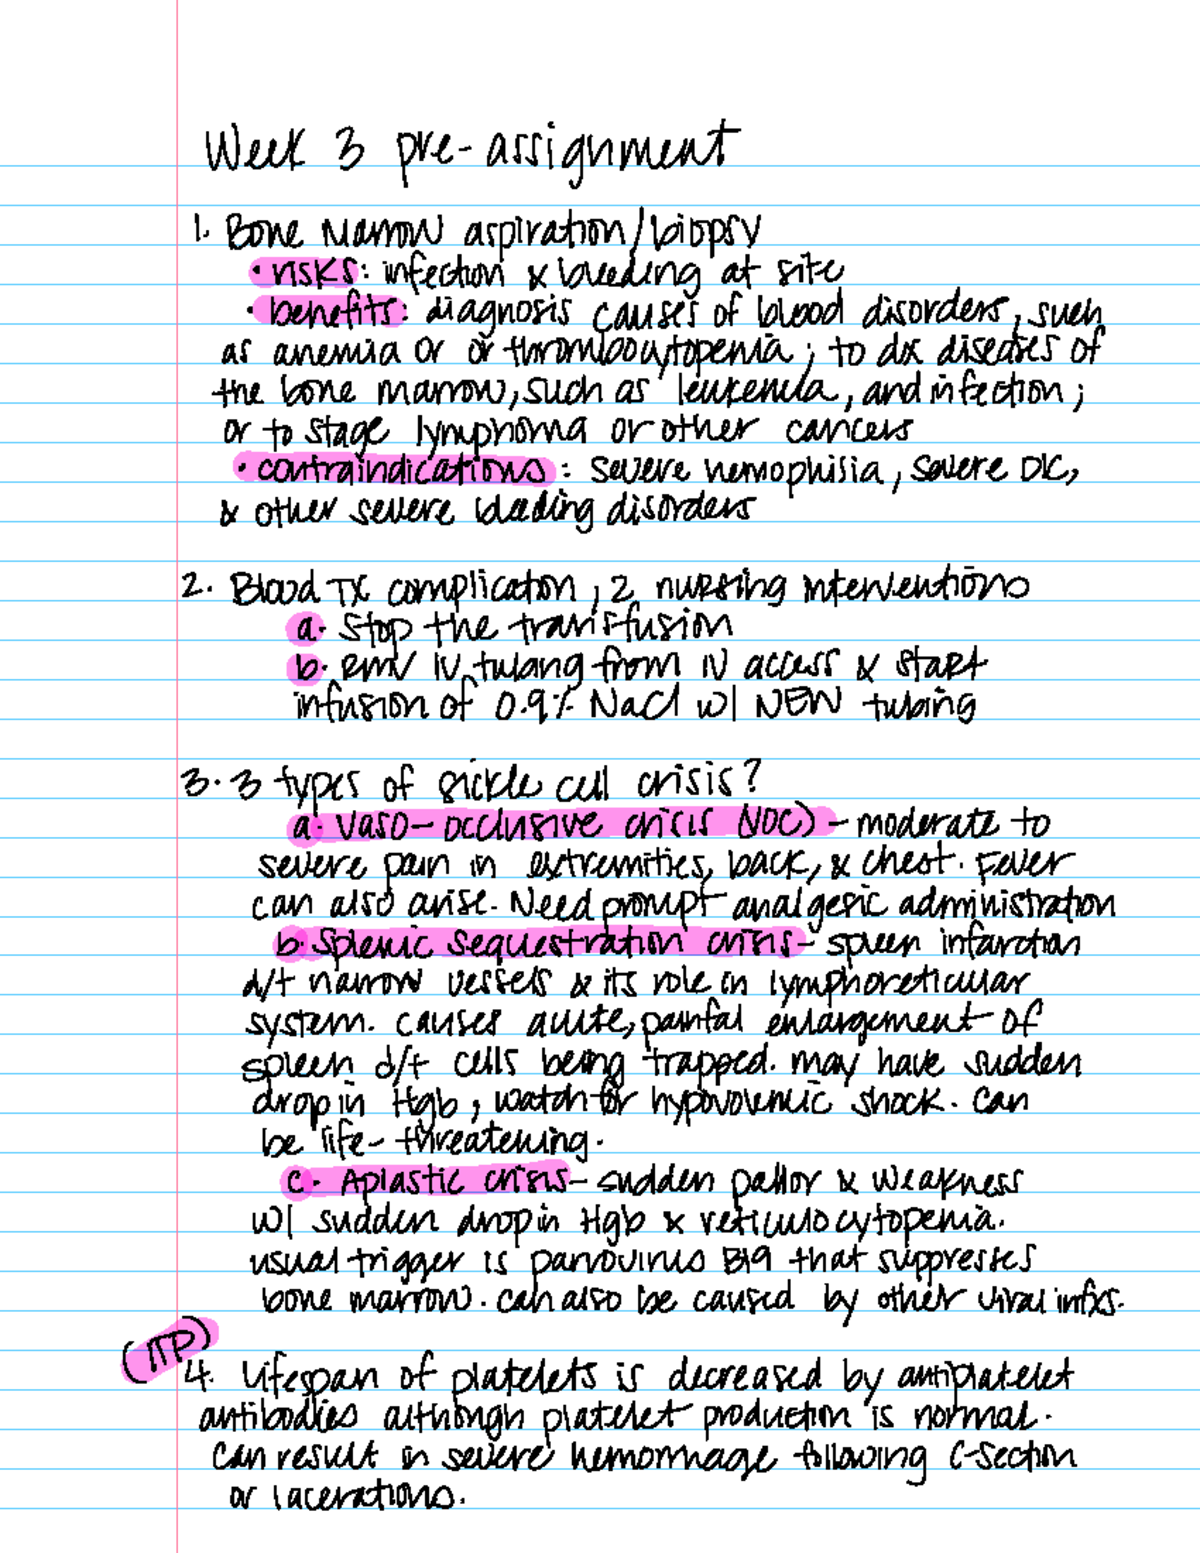 Week 3 pre-assignment
1. Bone Marrow aspiration/biopsy
• risks: infection & bleeding at site
• benefits: diagnosis causes of blood disorders, such
as anemia or or thrombocytopenia; to dx diseases of
the bone marrow, such as leukemia, and infection;
or to stage lymphoma or other cancers
• contraindications: severe hemophilia, severe DIC,
& other severe bleeding disorders
2. Blood TX complication, 2 nursing interventions
a. Stop the transfusion
b. RMV IV tubing from IV access & start
infusion of 0.9% NaCl w/ NEW tubing
3. 3 types of sickle cell crisis?
a. Vaso-occlusive crisis (VOC) - moderate to
severe pain in extremities, back, & chest. Fever
can also arise. Need prompt analgesic administration
b. Splenic sequestration crisis - spleen infarction
d/t narrow vessels & its role in lymphoreticular
system. causes acute, painful enlargement of
spleen d/t cells being trapped. may have sudden
drop in Hgb, watch for hypovolemic shock. can
be life-threatening.
c. Aplastic crisis - sudden pallor & weakness
w/ sudden drop in Hgb & reticulocytopenia.
usual trigger is parvovirus B19 that suppresses
bone marrow. can also be caused by other viral infxs.
(ITP)
4. Lifespan of platelets is decreased by antiplatelet
antibodies although platelet production is normal.
Can result in severe hemorrhage following C-section
or lacerations.